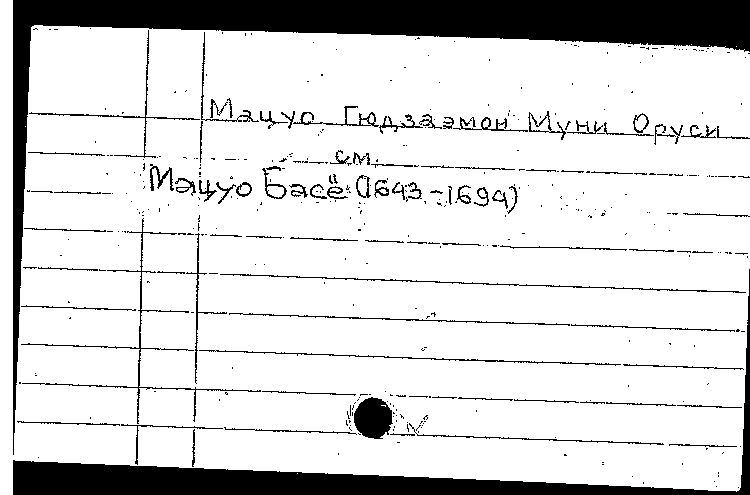 Мацуо Гюдзаэмон Муни Оруси
см.
Мацуо Басё (1643-1694)